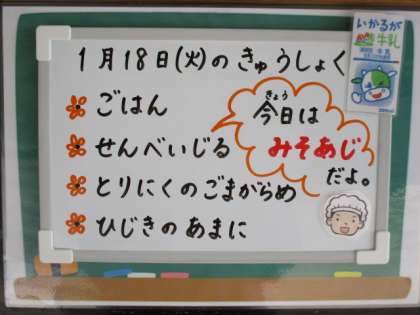 1月18日(火)のきゅうしょく
ごはん
せんべいじる
とりにくのごまがらめ
ひじきのあまに
きょう
今日は
みそあじ
だよ。
いかるが
牛乳